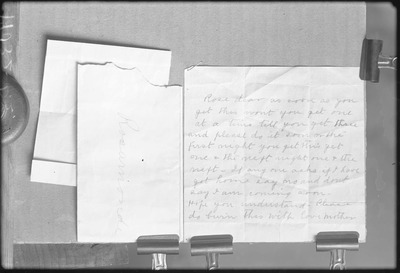 Rose dear as soon as you
get this wont you get one
at a time till you get these
and please do it soon or the
first night you get this get
one & the next night one & the
next - If any one asks if I have
got home say no and dont
say I am coming soon.
Hope you understand. Please
do burn this with love Mother